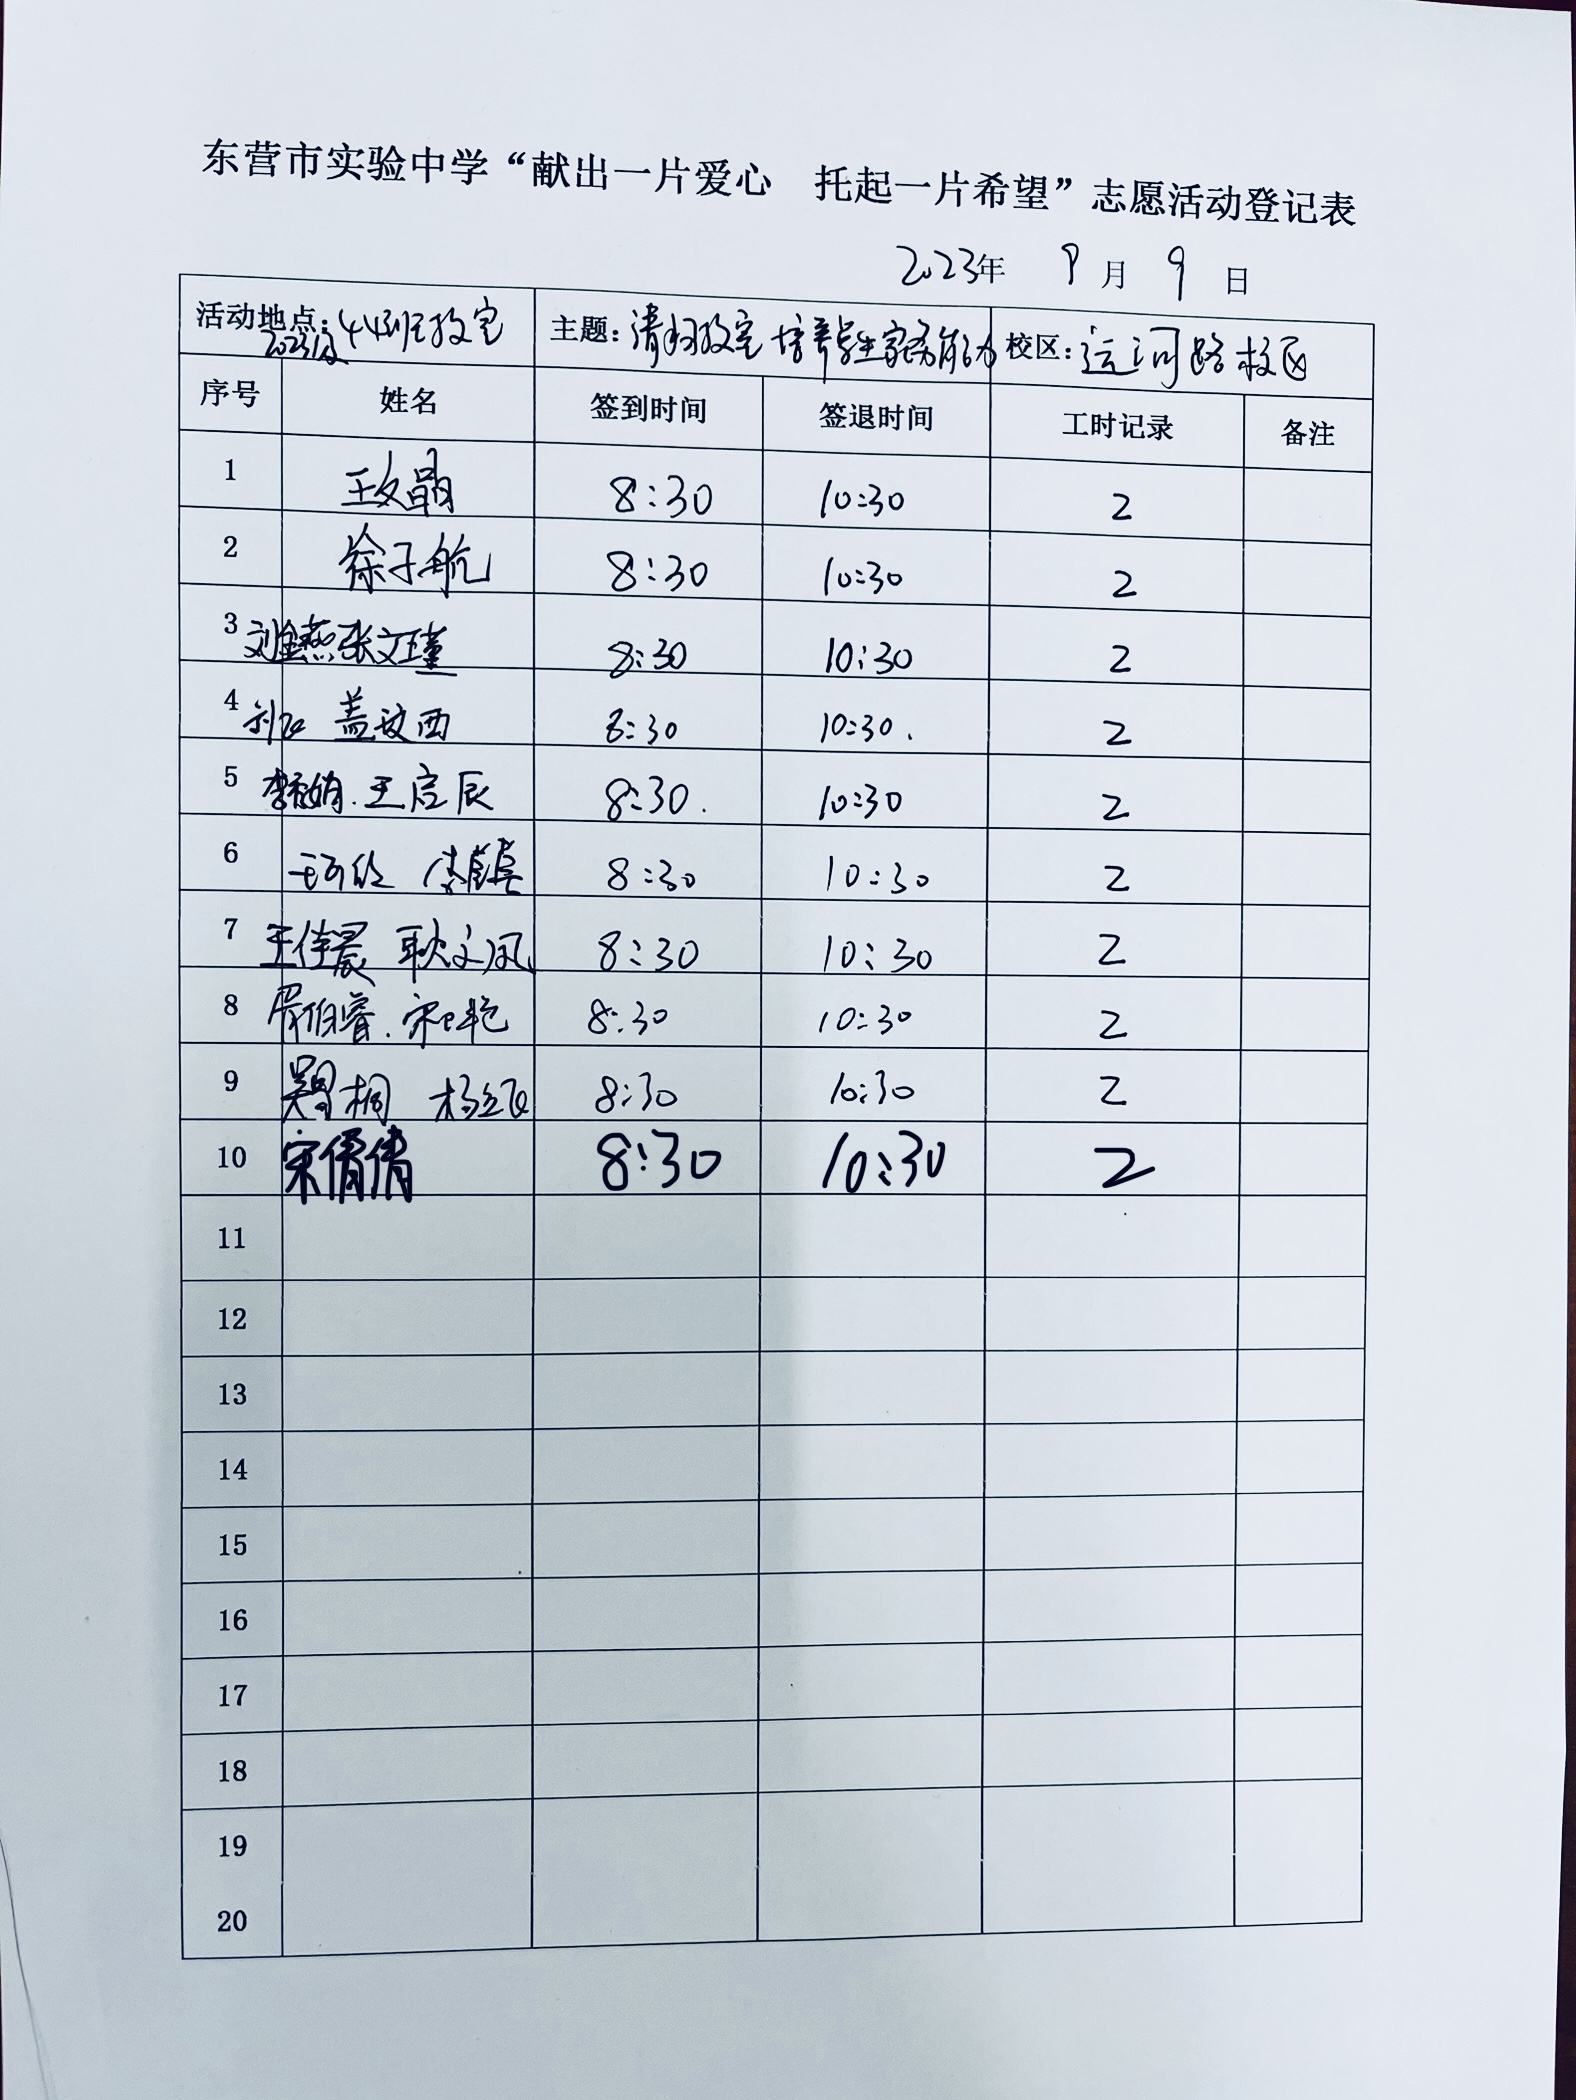 东营市实验中学“献出一片爱心 托起一片希望”志愿活动登记表
2023年 9月 9日
活动地点：2023级44班教室 主题：清扫教室 培养学生家务能力 校区：运河路校区
序号 姓名 签到时间 签退时间 工时记录 备注
1 王文晶 8:30 10:30 2
2 徐子航 8:30 10:30 2
3 刘金燕 张文瑾 8:30 10:30 2
4 盖玟西 8:30 10:30. 2
5 王启辰 8:30. 10:30 2
6 8:30 10:30 2
7 王佳晨 耿文凤 8:30 10:30 2
8 8:30 10:30 2
9 8:30 10:30 2
10 宋倩倩 8:30 10:30 2
11
12
13
14
15
16
17
18
19
20